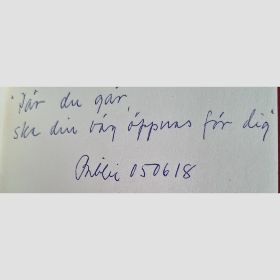 "Där du går,
ska din väg öppnas för dig"
050618